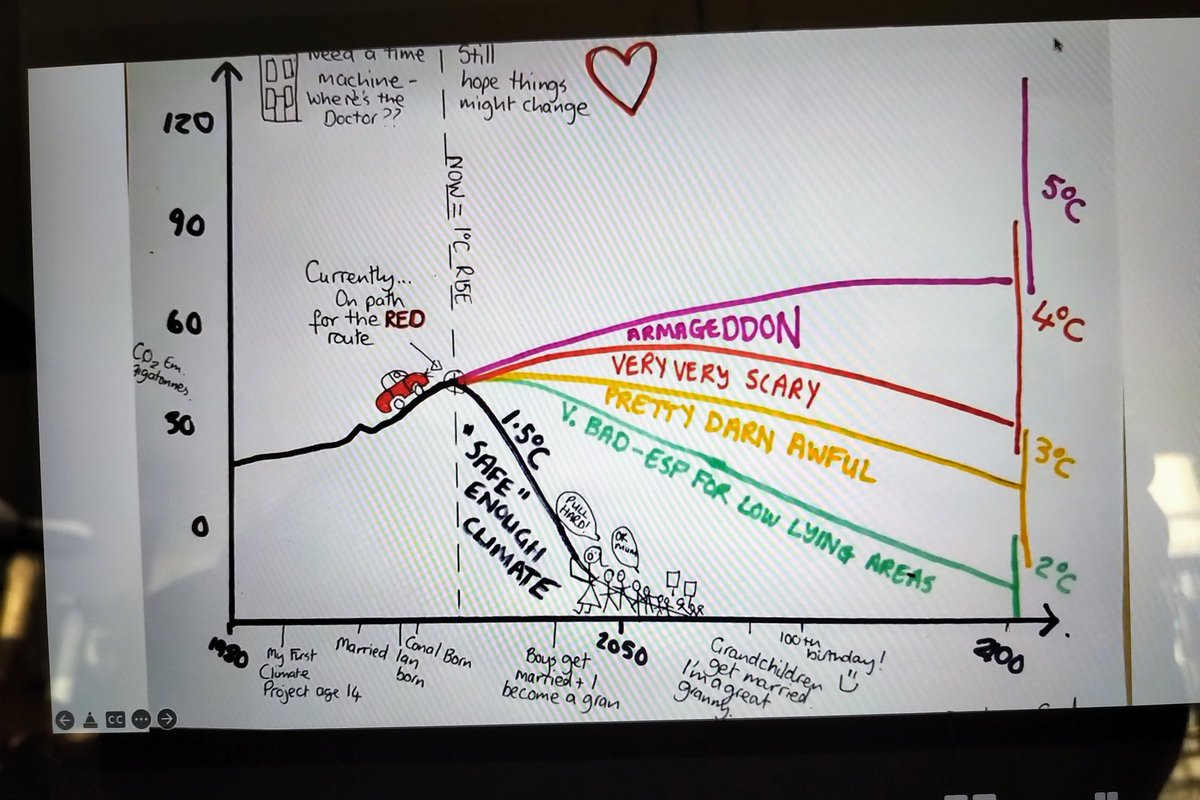 Need a time
machine -
where's the
Doctor??
Still
hope things
might change
120
90
60
30
0
CO2 Em.
gigatonnes
NOW = 1°C RISE
Currently...
On path
for the RED
route
ARMAGEDDON
VERY VERY SCARY
PRETTY DARN AWFUL
V. BAD-ESP FOR LOW LYING AREAS
1.5°C
"SAFE"
ENOUGH
CLIMATE
PULL
HARD!
OK
MUM
5°C
4°C
3°C
2°C
1980
2050
2100
My First
Climate
Project age 14
Married
Ian
born
Conal Born
Boys get
married + I
become a gran
Grandchildren
get married
I'm a great
granny.
100th
birthday!
CC